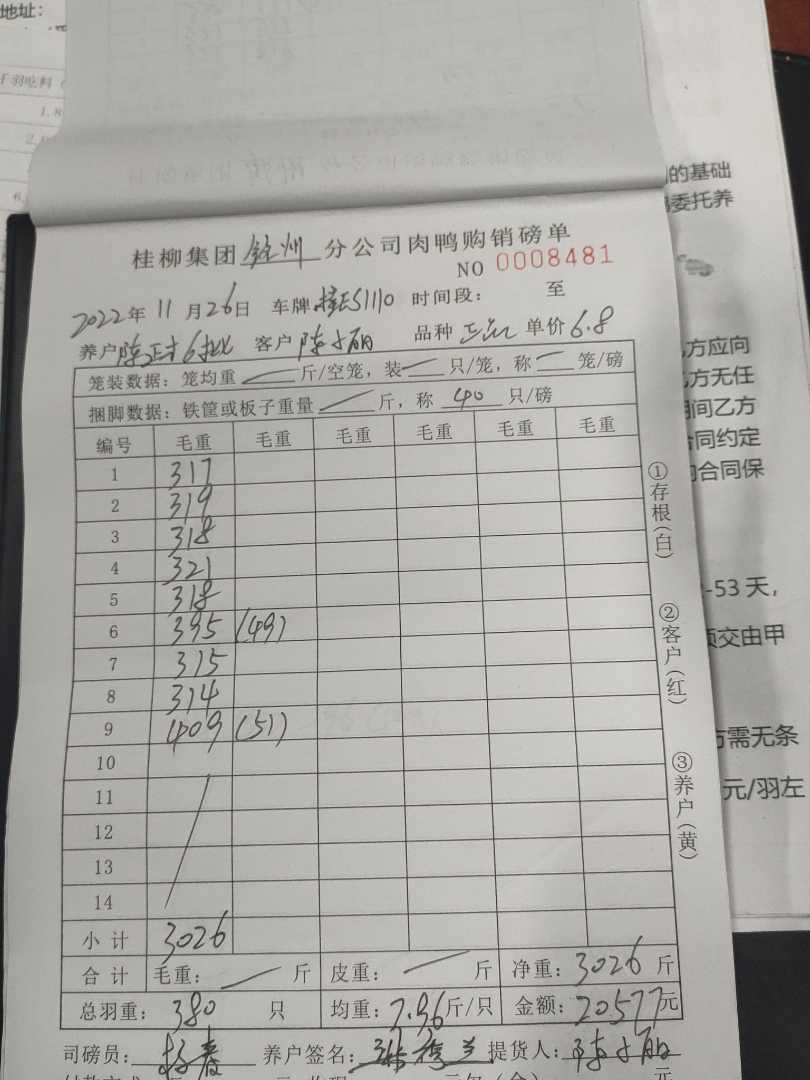 地址：
桂柳集团钦州分公司肉鸭购销磅单
NO 0008481
2022年11月26日 车牌桂E51110 时间段： 至
养户陈正才6批 客户陈小丽 品种 单价6.8
笼装数据：笼均重 斤/空笼，装 只/笼，称 笼/磅
捆脚数据：铁筐或板子重量 斤，称 40 只/磅
编号 毛重 毛重 毛重 毛重 毛重 毛重
1 317
2 319
3 318
4 321
5 318
6 395 (49)
7 315
8 314
9 409 (51)
10
11
12
13
14
小计 3026
合计 毛重： 斤 皮重： 斤 净重：3026斤
总羽重：380只 均重：7.96斤/只 金额：20577元
司磅员： 养户签名： 提货人：陈小丽
①存根(白)
②客户(红)
③养户(黄)
的基础
委托养
方应向
方无任
间乙方
合同约定
合同保
-53天，
交由甲
需无条
元/羽左